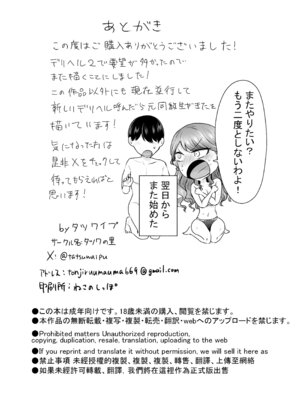 あとがき
この度はご購入ありがとうございました!
デリヘル2で要望が多かったので
また描くことにしました!
この作品以外にも現在並行して
新しいデリヘル呼んだら元同級生が来たを
描いています!
気になった方は
是非Xをチェックして
待ってもらえればと
思います!
またやりたい?
もう二度としないわよ!
翌日から
また始めた
byタツワイプ
サークル名:タツワの里
X: @tatsuwaipu
アドレス: tonjiruumauma669@gmail.com
印刷所: ねこのしっぽ
●この本は成年向けです。18歳未満の購入、閲覧を禁じます。
●本作品の無断転載・複写・複製・転売・翻訳・webへのアップロードを禁じます。
●Prohibited matters Unauthorized reproduction,
copying, duplication, resale, translation, uploading to the web
●If you reprint and translate it without permission, we will sell it here as
●禁止事項 未經授權的複製、複製、複製、轉售、翻譯、上傳至網絡
●如果未經許可轉載、翻譯, 我們將在這裡作為正式版出售